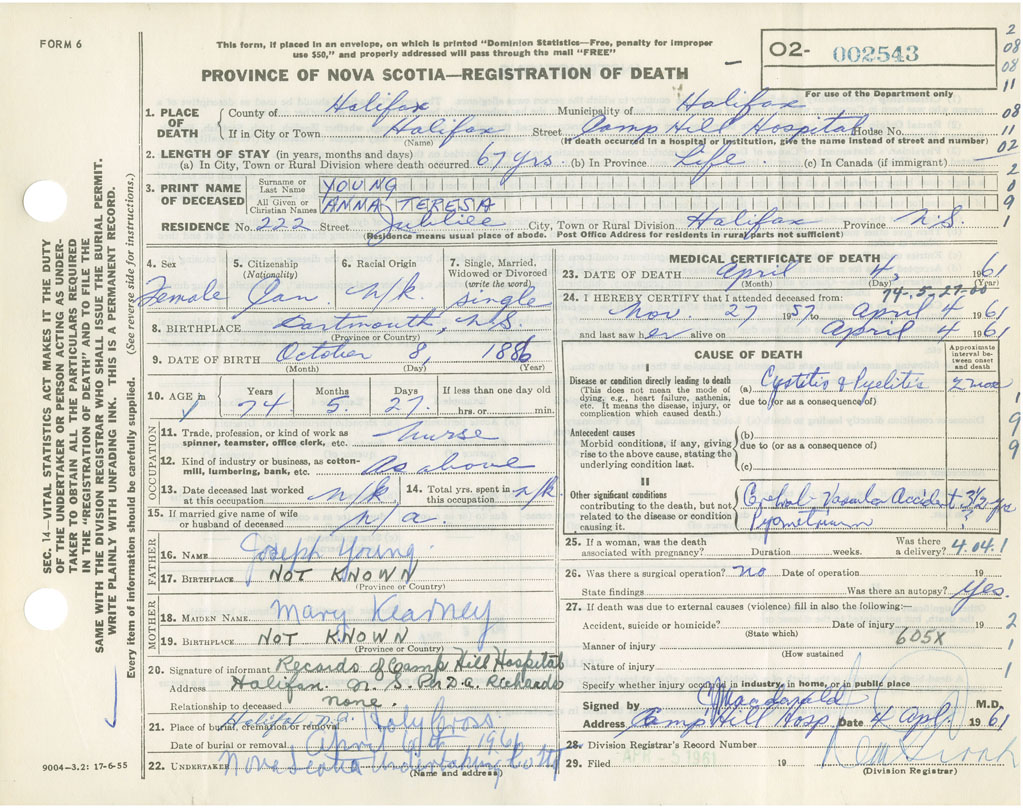 FORM 6
This form, if placed in an envelope, on which is printed "Dominion Statistics—Free, penalty for improper
use $50," and properly addressed will pass through the mail "FREE"
PROVINCE OF NOVA SCOTIA—REGISTRATION OF DEATH
02- 002543
For use of the Department only
2
08
08
11
08
11
02
2
0
9
1
1. PLACE OF DEATH { County of Halifax Municipality of Halifax
If in City or Town Halifax Street Camp Hill Hospital House No.
(Name) (If death occurred in a hospital or institution, give the name instead of street and number)
2. LENGTH OF STAY (in years, months and days)
(a) In City, Town or Rural Division where death occurred 67 yrs. (b) In Province Life. (c) In Canada (if immigrant)
3. PRINT NAME OF DECEASED { Surname or Last Name YOUNG
All Given or Christian Names ANNA TERESA
RESIDENCE No. 222 Street Jubilee City, Town or Rural Division Halifax Province N.S.
(Residence means usual place of abode. Post Office Address for residents in rural parts not sufficient)
4. Sex
Female
5. Citizenship (Nationality)
Can.
6. Racial Origin
n/k.
7. Single, Married, Widowed or Divorced (write the word)
Single
8. BIRTHPLACE Dartmouth, N.S.
(Province or Country)
9. DATE OF BIRTH October 8, 1886
(Month) (Day) (Year)
10. AGE in Years Months Days If less than one day old
74. 5. 27. hrs. or min.
OCCUPATION
11. Trade, profession, or kind of work as spinner, teamster, office clerk, etc. Nurse
12. Kind of industry or business, as cotton-mill, lumbering, bank, etc. As above
13. Date deceased last worked at this occupation n/k 14. Total yrs. spent in this occupation n/k
15. If married give name of wife or husband of deceased n/a.
FATHER
16. NAME Joseph Young.
17. BIRTHPLACE NOT KNOWN
(Province or Country)
MOTHER
18. MAIDEN NAME Mary Kearney
19. BIRTHPLACE NOT KNOWN
(Province or Country)
20. Signature of informant Records of Camp Hill Hospital
Address Halifax. N.S. Per D.A. Richards
Relationship to deceased none.
21. Place of burial, cremation or removal Halifax Holy Cross
Date of burial or removal April 6th 1961
22. UNDERTAKER Nova Scotia Undertaking Co Ltd
(Name and address)
9004—3.2: 17-6-55
SEC. 14—VITAL STATISTICS ACT MAKES IT THE DUTY
OF THE UNDERTAKER OR PERSON ACTING AS UNDER-
TAKER TO OBTAIN ALL THE PARTICULARS REQUIRED
IN THE "REGISTRATION OF DEATH" AND TO FILE THE
SAME WITH THE DIVISION REGISTRAR WHO SHALL ISSUE THE BURIAL PERMIT.
WRITE PLAINLY WITH UNFADING INK. THIS IS A PERMANENT RECORD.
Every item of information should be carefully supplied. (See reverse side for instructions.)
MEDICAL CERTIFICATE OF DEATH
23. DATE OF DEATH April 4, 1961
(Month) (Day) (Year)
74-.5-27-00
24. I HEREBY CERTIFY that I attended deceased from:
Nov. 27 1957 to April 4 1961
and last saw her alive on April 4 1961
CAUSE OF DEATH
Approximate interval between onset and death
I
Disease or condition directly leading to death
(This does not mean the mode of dying, e.g., heart failure, asthenia, etc. It means the disease, injury, or complication which caused death.)
(a) Cystitis & Pyelitis
due to (or as a consequence of)
Antecedent causes
Morbid conditions, if any, giving rise to the above cause, stating the underlying condition last.
(b)
due to (or as a consequence of)
(c)
II
Other significant conditions
contributing to the death, but not related to the disease or condition causing it.
Cerebral-Vascular Accident 3½ yrs
Pyometrium ?
1
9
9
25. If a woman, was the death associated with pregnancy? Duration weeks. Was there a delivery? 4.04.1
26. Was there a surgical operation? no Date of operation 19
State findings Was there an autopsy? Yes.
27. If death was due to external causes (violence) fill in also the following:—
Accident, suicide or homicide? Date of injury 19 2
(State which)
605X
Manner of injury 1
(How sustained
Nature of injury 1
Specify whether injury occurred in industry, in home, or in public place
Signed by Macdonald M.D.
Address Camp Hill Hosp Date 4 Apl. 1961
28. Division Registrar's Record Number
29. Filed 1961 19
(Division Registrar)